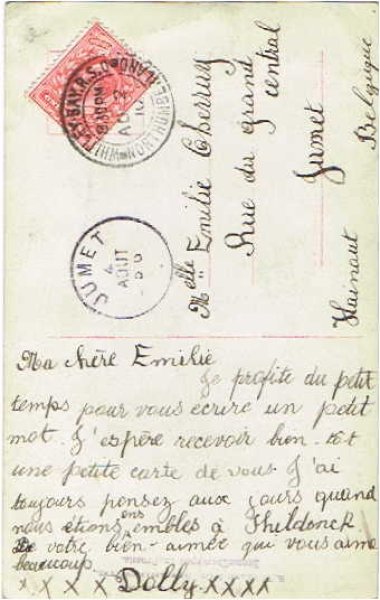 WHITLEY-BAY.R.S.O.
NORTHUMBERLAND
8.30PM
AU 2
10
JUMET
4
AOUT
Melle Emilie Cherruy
Rue du grand
central
Jumet
Hainaut Belgique
Ma chère Emilie
Je profite du petit
temps pour vous écrire un petit
mot. J'espère recevoir bien-tôt
une petite carte de vous J'ai
toujours pensez aux jours quand
nous étions ensembles à Thildonck
De votre bien-aimée qui vous aime
beaucoup.
x x x x Dolly x x x x